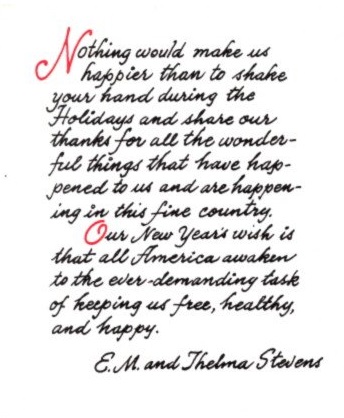 Nothing would make us
happier than to shake
your hand during the
Holidays and share our
thanks for all the wonder-
ful things that have hap-
pened to us and are happen-
ing in this fine country.
Our New Year's wish is
that all America awaken
to the ever-demanding task
of keeping us free, healthy,
and happy.
E. M. and Thelma Stevens